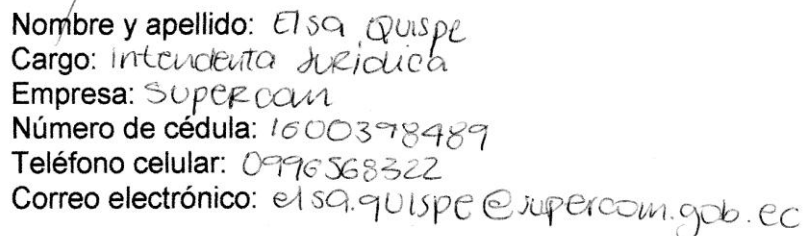 Nombre y apellido: Elsa Quispe
Cargo: Intendenta Jurídica
Empresa: Supercom
Número de cédula: 1600398489
Teléfono celular: 0996568322
Correo electrónico: elsa.quispe@supercom.gob.ec